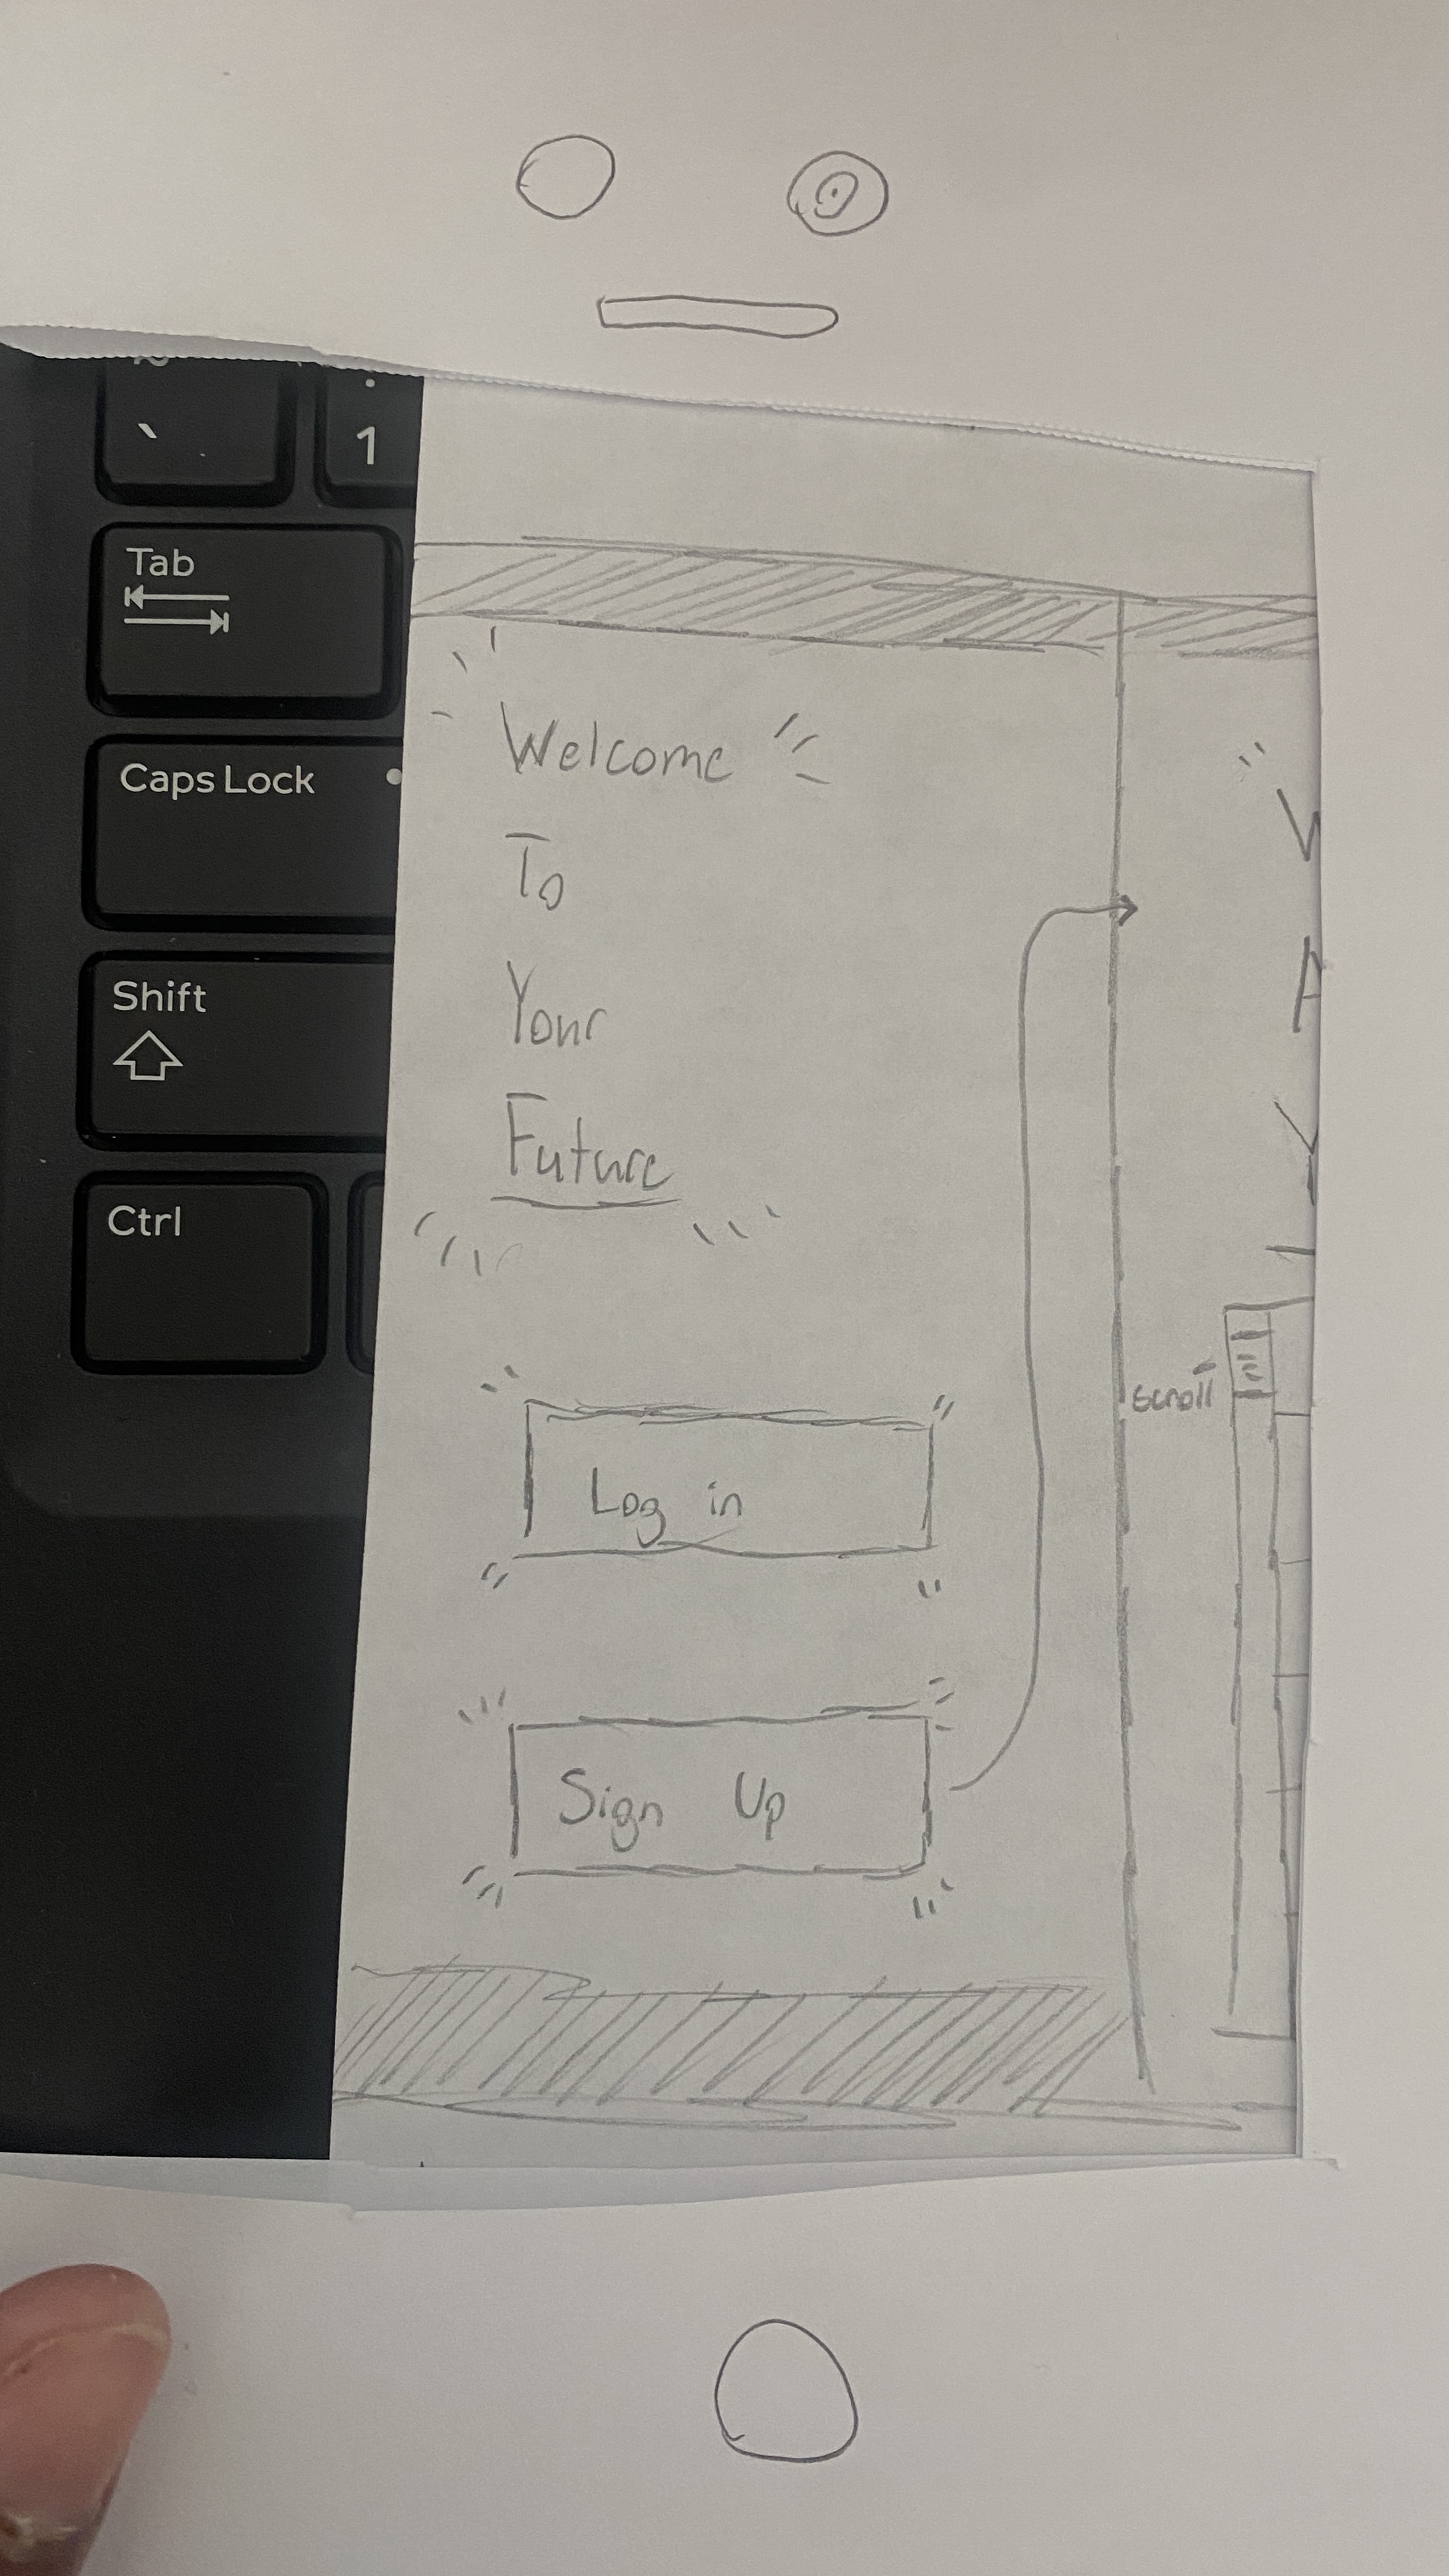 `
1
Tab
Caps Lock
Shift
Ctrl
Welcome
To
Your
Future
Log in
Sign Up
W
A
Y
scroll